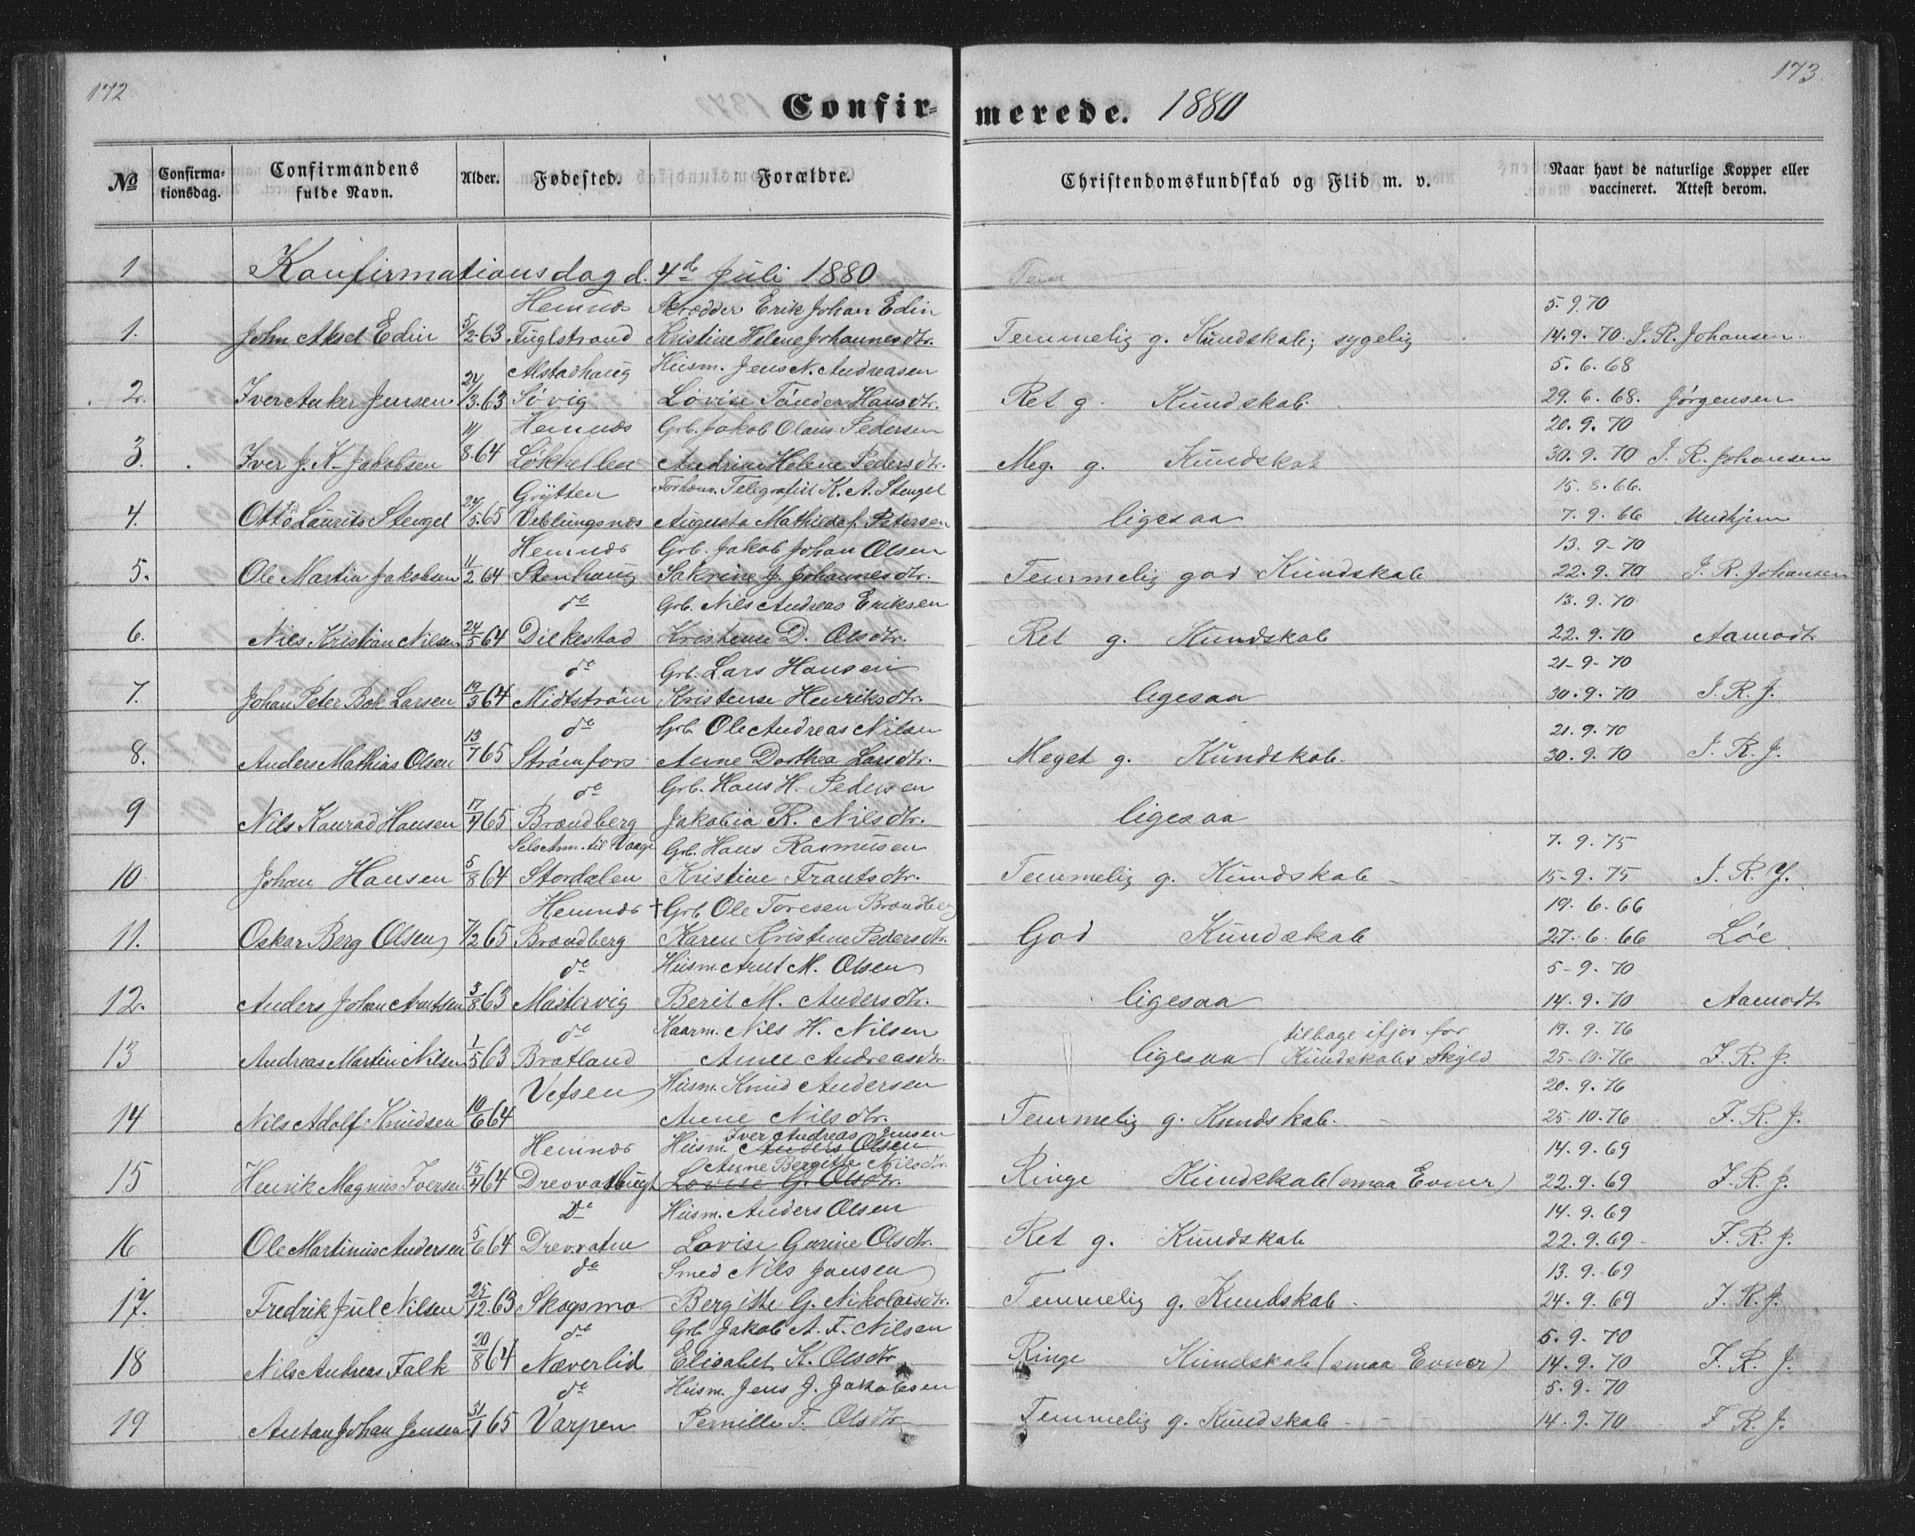 172
173.
Confir-merede. 1880
No Confirma-tionsdag. Confirmandens fulde Navn. Alder. Fødested. Forældre. Christendomskundskab og Flid m. v. Naar havt de naturlige Kopper eller vaccineret. Attest derom.
1 Konfirmationsdag d. 4de Juli 1880
Hemnæs Skrædder Erik Johan Edin 5.9.70
1. John Aksel Edin 5/2-63 Fuglstrand Kristine Helene Johannesdtr. Temmelig g. Kundskab; sygelig 14.9.70 J. R. Johansen.
Alstadhaug Husm. Jens N. Andreasen 5.6.68
2. Iver Anker Jensen 24/3.63 Søvig Lovise Tønder Hansdtr. Ret g. Kundskab. 29.6.68. Jørgensen
Hemnæs Grb. Jakob Olaus Pedersen 20.9.70
3. Iver J. K. Jakobsen 11/8.64 Løkhellen Andrine Helene Pedersdtr. Meg. g. Kundskab 30.9.70 J. R. Johansen
Grytten Forhenv. Telegrafist K. A. Stengel 15.8.66.
4. Otto Laurits Stengel 24/5.65 Veblungsnæs Augusta Mathilde f. Petersen ligesaa 7.9.66
Hemnæs Grb. Jakob Johan Olsen 13.9-70
5. Ole Martin Jakobsen 11/2 64 Stenhaug Sakrine J. Johannesdtr. Temmelig god Kundskab 22.9.70 J. R. Johansen
do Grb. Nils Andreas Eriksen 13.9.70
6. Nils Kristian Nilsen 24/5 64 Dilkestad Kristense D. Olsdtr. Ret g. Kundskab 22.9.70 Aamodt
do Grb. Lars Hansen 21-9-70
7. Johan Peter Bok Larsen 19/3 64 Midtstrøm Kristense Henriksdtr. ligesaa 30.9.70 J. R. J.
do Grb. Ole Andreas Nilsen 21.9.70
8. Anders Mathias Olsen 13/7 65 Strømfors Anne Dorthea Larsdtr. Meget g. Kundskab. 30.9.70 J. R. J.
do Grb. Hans H. Pedersen
9 Nils Konrad Hansen 17/4 65 Brændberg Jakobia R. Nilsdtr. ligesaa
Sels Ann. til Vaage Grb. Hans Rasmusen 7.9.75
10 Johan Hansen 5/8 64 Stordalen Kristine Frantsdtr. Temmelig g. Kundskab 15-9.75 J. R. J.
Hemnæs † Grb Ole Toresen Brændberg 19.6.66
11. Oskar Berg Olsen 7/2 65 Brændberg Karen Kristine Pedersdtr. God Kundskab 27.6.66 Løe
do Husm. Arnt M. Olsen 5-9.70
12. Anders Johan Arntsen 3/8 63 Mastervig Berit M. Andersdtr. ligesaa 14.9.70 Aamodt
do Kaarm. Nils H. Nilsen tilbage ifjor for 19.9.76
13 Andreas Martin Nilsen 1/5 63 Bratland Anne Andreasdtr. ligesaa (Kundskabs Skyld 25-10.76 J. R. J.
Vefsen Husm. Knud Andersen 20.9.76
14 Nils Adolf Knudsen 10/6 64 Anne Nilsdtr. Temmelig g. Kundskab. 25.10.76 J. R. J.
Iver Andreas Jensen
Hemnæs Husm. Anders Olsen 14.9.69
Anne Bergitte Nilsdtr.
15 Henrik Magnus Iversen 15/4 64 Drevvatbugt Lovise G. Olsdtr. Ringe Kundskab (smaa Evner) 22.9.69 J. R. J.
Do Husm. Anders Olsen 14.9.69
16 Ole Martinius Andersen 5/6 64 Drevvaten Lovise Gurine Olsdtr. Ret g. Kundskab 22.9.69- J. R. J.
do Smed Nils Jansen 13.9.69
17. Fredrik Jul Nilsen 25/12 63 Skogsmo Bergitte G. Nikolaisdtr. Temmelig g. Kundskab. 24.9.69 J. R. J.
do Grb Jakob A. F. Nilsen 5.9.70
18 Nils Andreas Falk 20/8 64 Næverlid Elisabet K. Olsdtr. Ringe Kundskab (smaa Evner) 14.9.70 J. R. J.
do Husm. Jens J. Jakobsen 5.9.70
19 Antan Johan Jensen 31/1 65 Varpen Pernille T. Olsdtr. Temmelig g. Kundskab 14.9.70 J. R. J.